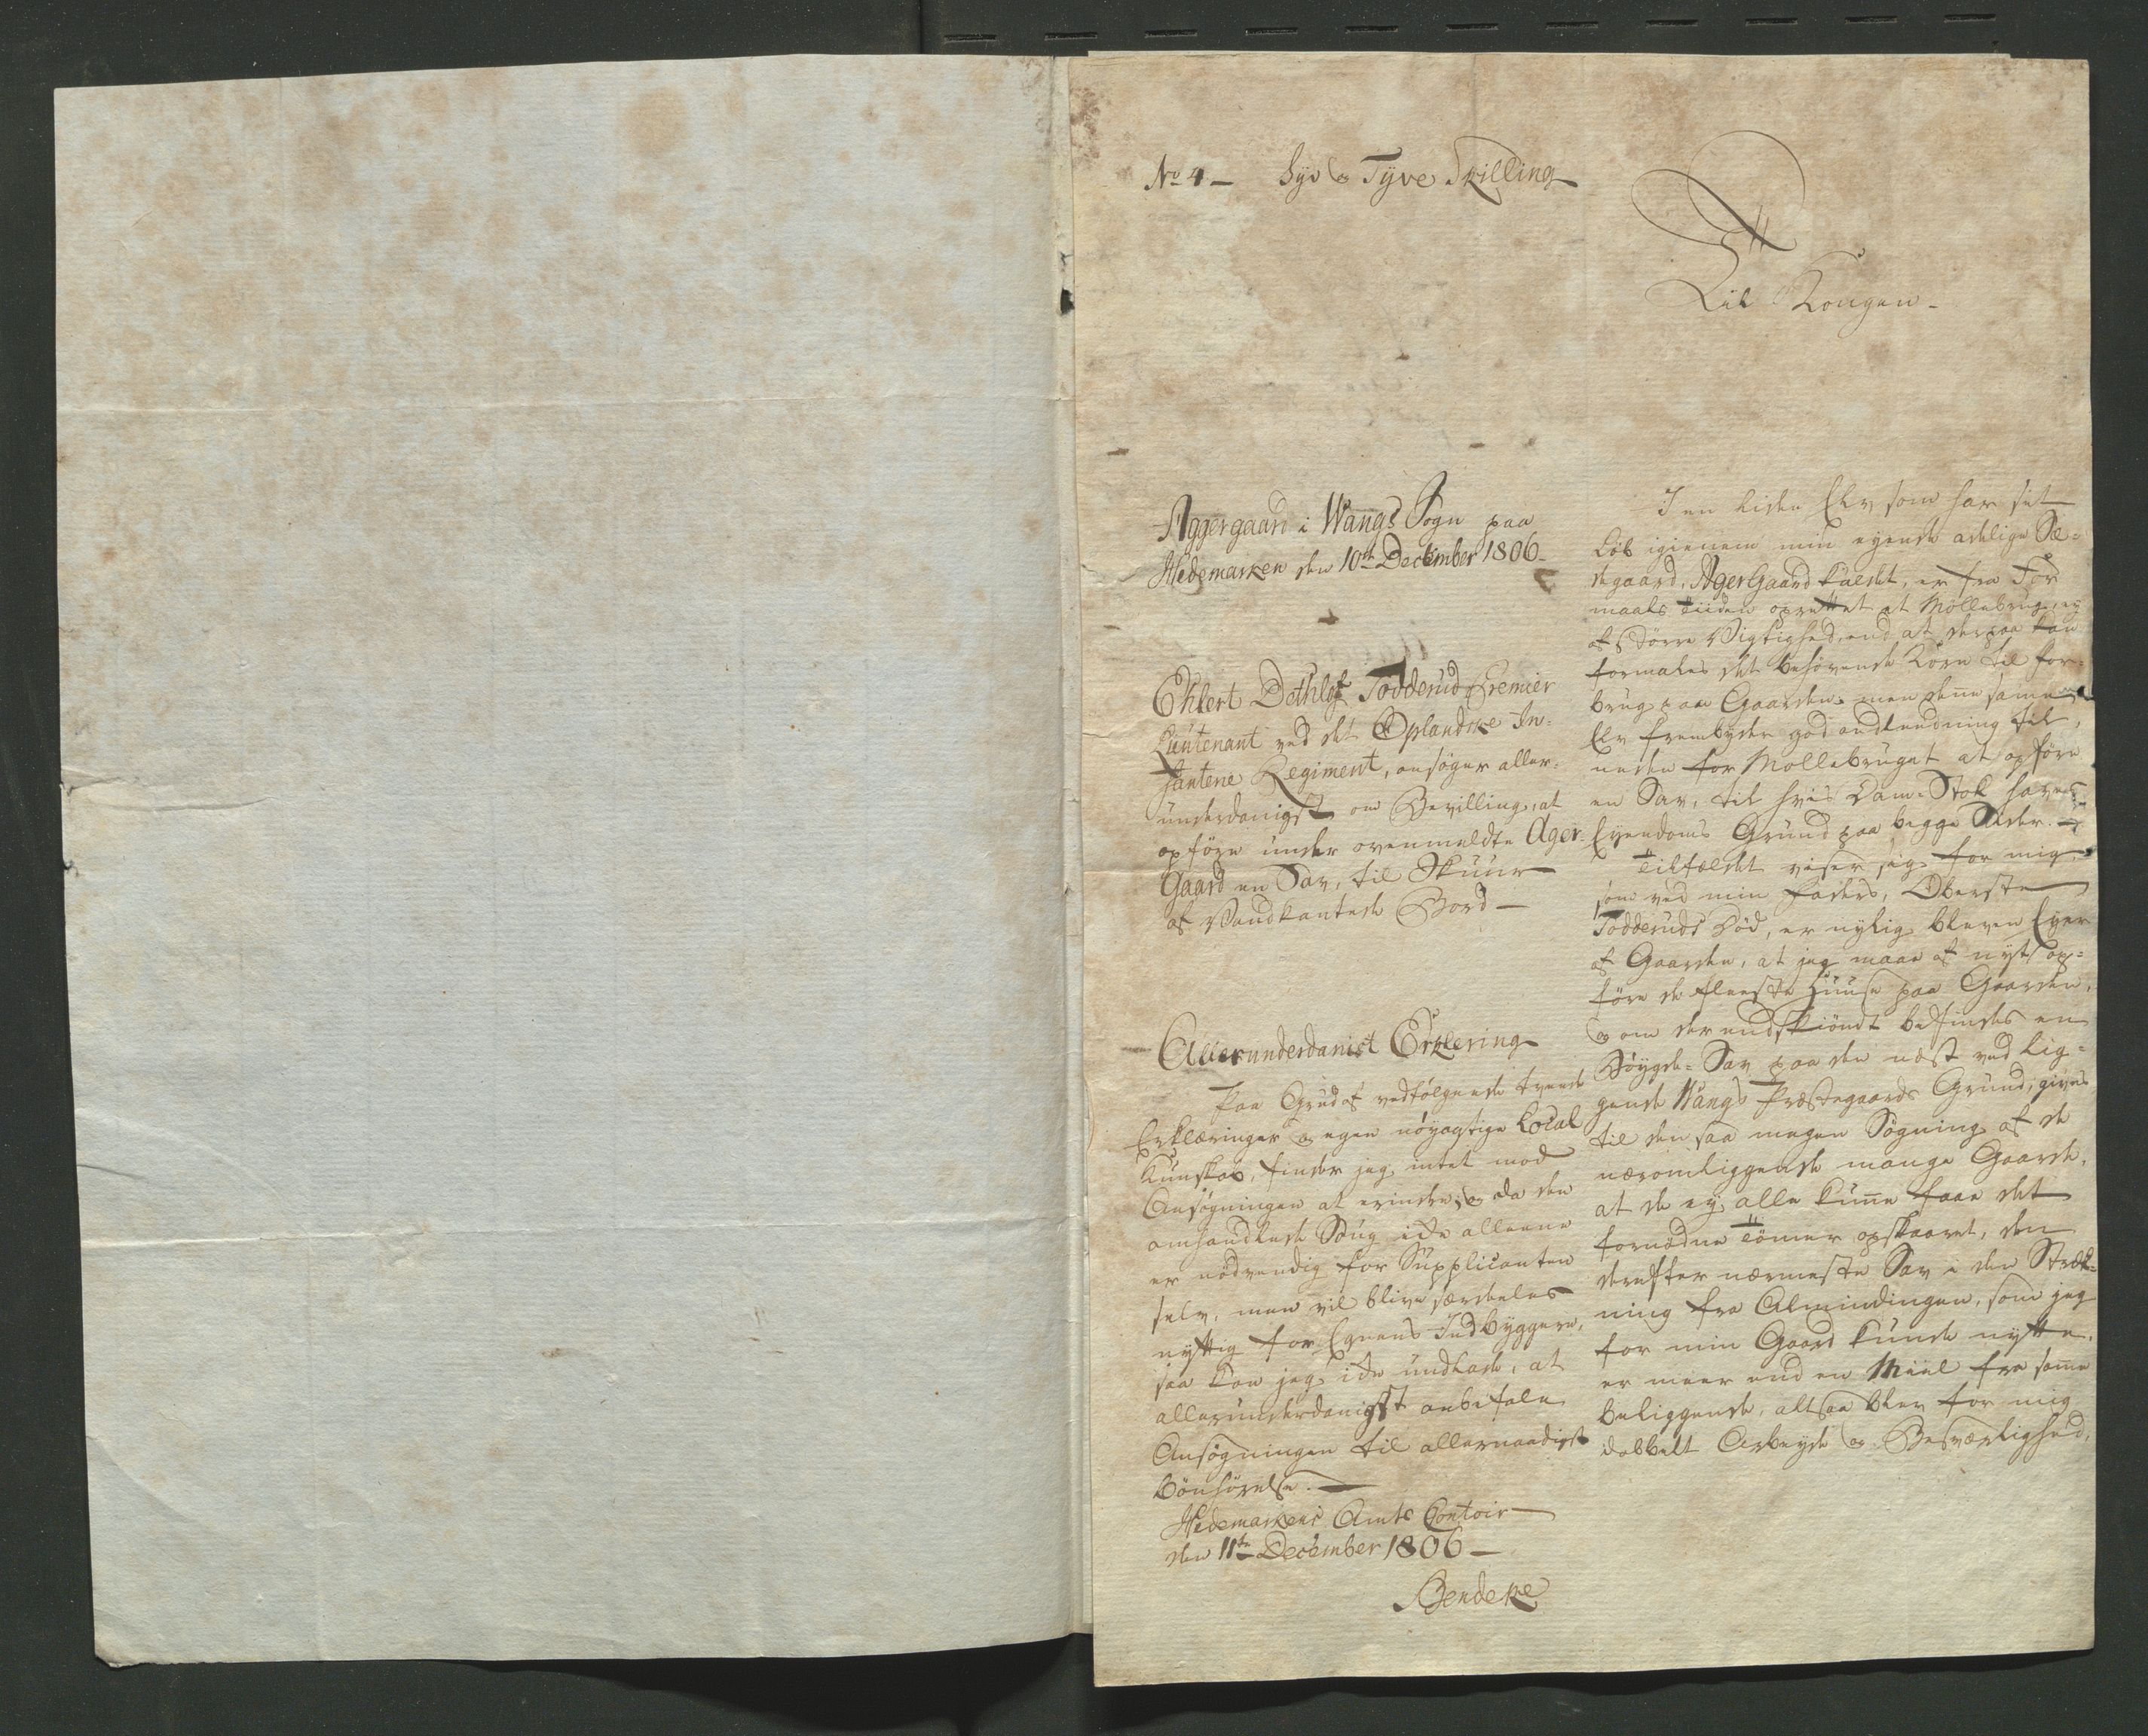 No 4 - Syv og Tyve Skilling
Til Kongen -
Aggergaard i Wangs Sogn paa
Hedemarken den 10de December 1806 -
Ehlert Dethlef Todderud Premier
Lieutenant ved det Oplandske In-
fanterie Regiment, ansøger aller-
underdanigst om Bevilling, at
opføre under ovenmeldte Ager-
Gaard en Sav, til Skuur
af Vandkantede Bord -
Allerunderdanist Erklering
Paa Grund af vedfølgende tvende
Erklæringer og egen nøyagtige Local
Kunskab, finder jeg intet mod
Ansøgningen at erindre; og da den
omhandlede Saug ikke alleene
er nødvendig for Supplicanten
selv, men vil blive særdeeles
nyttig for Egnens Indbyggere,
saa kan jeg ikke undlade, at
allerunderdanigst anbefale
Ansøgningen til allernaadigst
bønhørelse. -
Hedemarkens Amts Contoir
den 11te December 1806 -
Bendeke
I en liden Elv som har sit
Løb igienem min eyende adelige Sæ-
degaard, AgerGaard kaldet, er fra For
maals Tiiden oprettet et Møllebrug, ey
af større Vigtighed, end at derpaa kan
formales det behøvende Korn til for-
brug paa Gaarden. men denne samme
Elv frembyder god andledning til,
neden for Møllebruget at opføre
en Sav, til hvis Dam-Stok haves
Eyendoms Grund paa begge Sider. -
Tilfældet viser sig for mig,
som ved min Faders, Oberste
Todderuds Død, er nylig bleven Eyer
af Gaarden, at jeg maae af nyt op-
føre de fleeste Huuse paa Gaarden,
og om der endskiøndt befindes en
Bøygde-Sav paa den næst ved lig-
gende Wangs Præstegaards Grund, gives
til den saa megen Søgning af de
næromliggende mange Gaarde,
at de ey alle kunne faae det
fornødne Tømer opskaaret, den
derefter nærmeste Sav i den Stræk-
ning fra Almindingen, som jeg
for min Gaard kunde nytte,
er meer end en Miil fra samme
beliggende, altsaa blev for mig
dobbelt Arbeyde og Besværlighed,